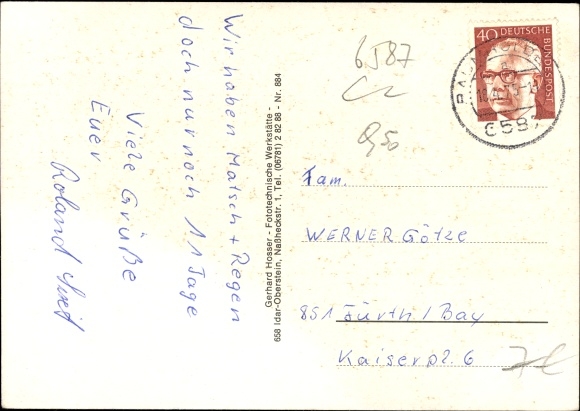 Wir haben Matsch + Regen
doch nur noch 11 Tage
Viele Grüße
Euer
Roland
Gerhard Hosser - Fototechnische Werkstätte -
658 Idar-Oberstein, Naßheckstr. 1, Tel. (06781) 2 82 88 - Nr. 884
6587
9,50
40 DEUTSCHE
BUNDESPOST
658
Fam.
WERNER Götze
851 Fürth / Bay
Kaiserpl. 6